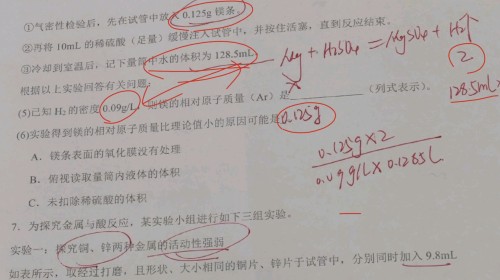 ①气密性检验后，先在试管中放入0.125g镁条
②再将10mL的稀硫酸（足量）缓慢注入试管中，并按住活塞，直到反应结束。
③冷却到室温后，记下量筒中水的体积为128.5mL。
Mg + H₂SO₄ = MgSO₄ + H₂↑
根据以上实验回答有关问题：
2
(5)已知H₂的密度0.09g/L，则镁的相对原子质量（Ar）是（列式表示）。
x 0.125g
128.5mL
(6)实验得到镁的相对原子质量比理论值小的原因可能是
0.125g×2
0.09g/L×0.1285L
A．镁条表面的氧化膜没有处理
B．俯视读取量筒内液体的体积
C．未扣除稀硫酸的体积
7．为探究金属与酸反应，某实验小组进行如下三组实验。
实验一：探究铜、锌两种金属的活动性强弱
如表所示，取经过打磨，且形状、大小相同的铜片、锌片于试管中，分别同时加入9.8mL